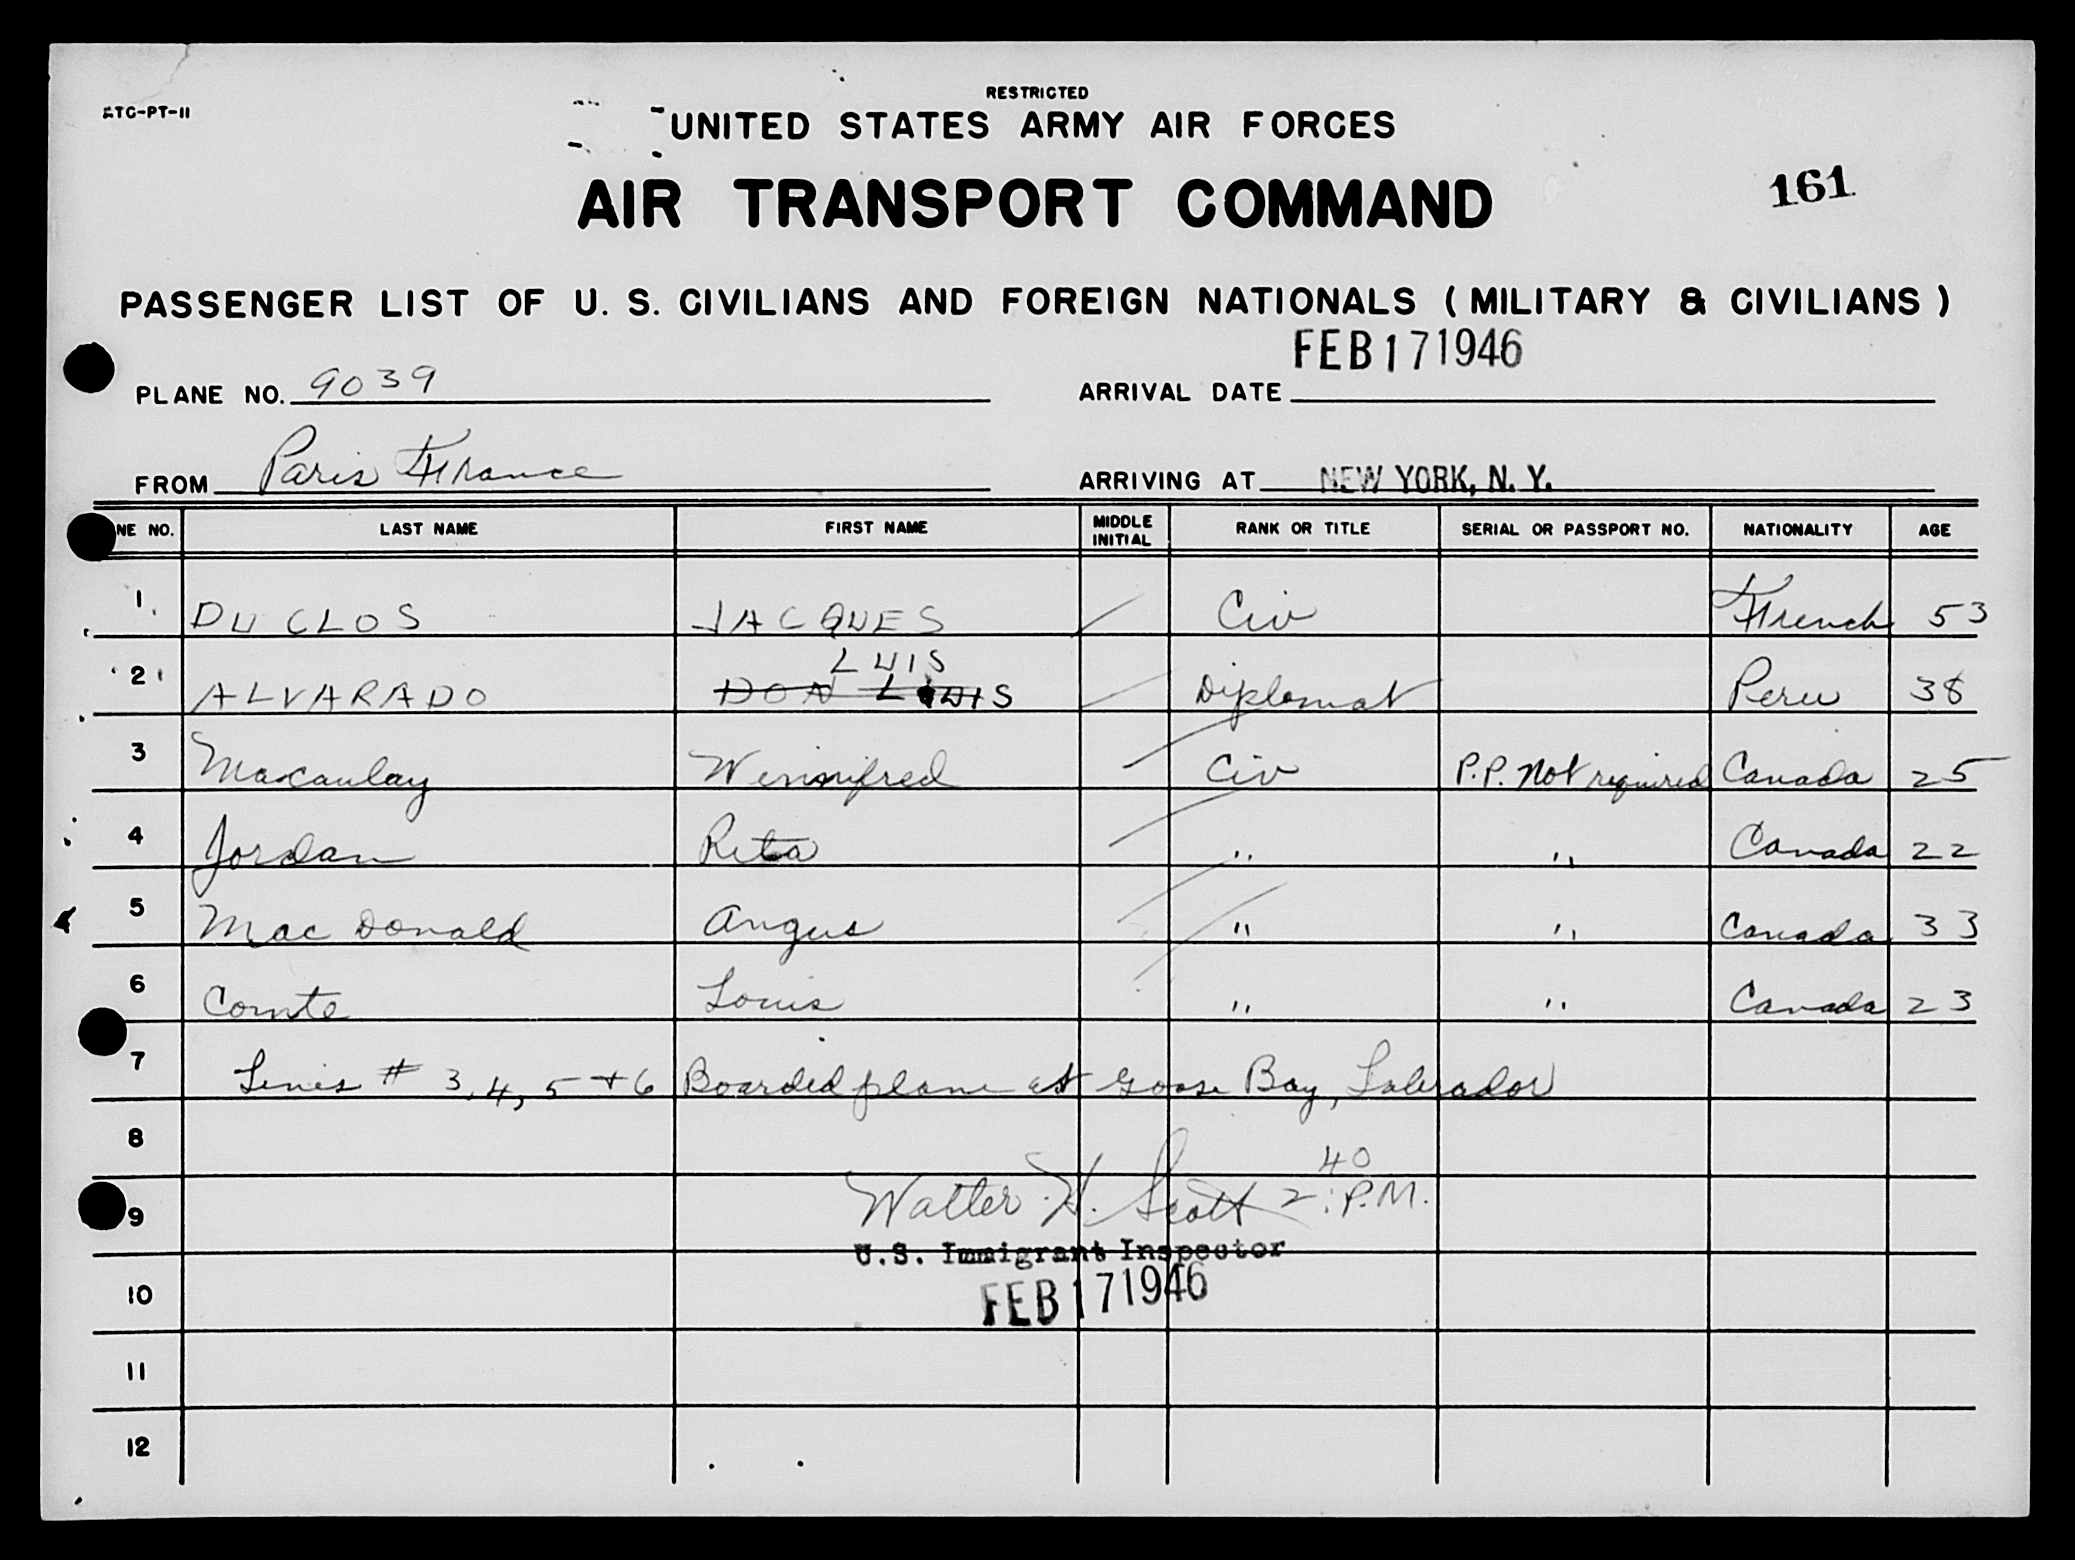 ATC-PT-11
RESTRICTED
UNITED STATES ARMY AIR FORCES
AIR TRANSPORT COMMAND
161
PASSENGER LIST OF U. S. CIVILIANS AND FOREIGN NATIONALS ( MILITARY & CIVILIANS )
PLANE NO. 9039 ARRIVAL DATE FEB 17 1946
FROM Paris France ARRIVING AT NEW YORK, N. Y.
NE NO. LAST NAME FIRST NAME MIDDLE INITIAL RANK OR TITLE SERIAL OR PASSPORT NO. NATIONALITY AGE
1 DUCLOS JACQUES Civ French 53
LUIS
2 ALVARADO DON LUIS Diplomat Peru 38
3 Macaulay Winnifred Civ P.P. Not required Canada 25
4 Jordan Rita " " Canada 22
5 Mac Donald Angus " " Canada 33
6 Comte Louis " " Canada 23
7 Lines # 3, 4, 5 + 6 Boarded plane at Goose Bay, Labrador
8
9 Walter H. Scott 2:40 P.M.
U.S. Immigrant Inspector
10 FEB 17 1946
11
12